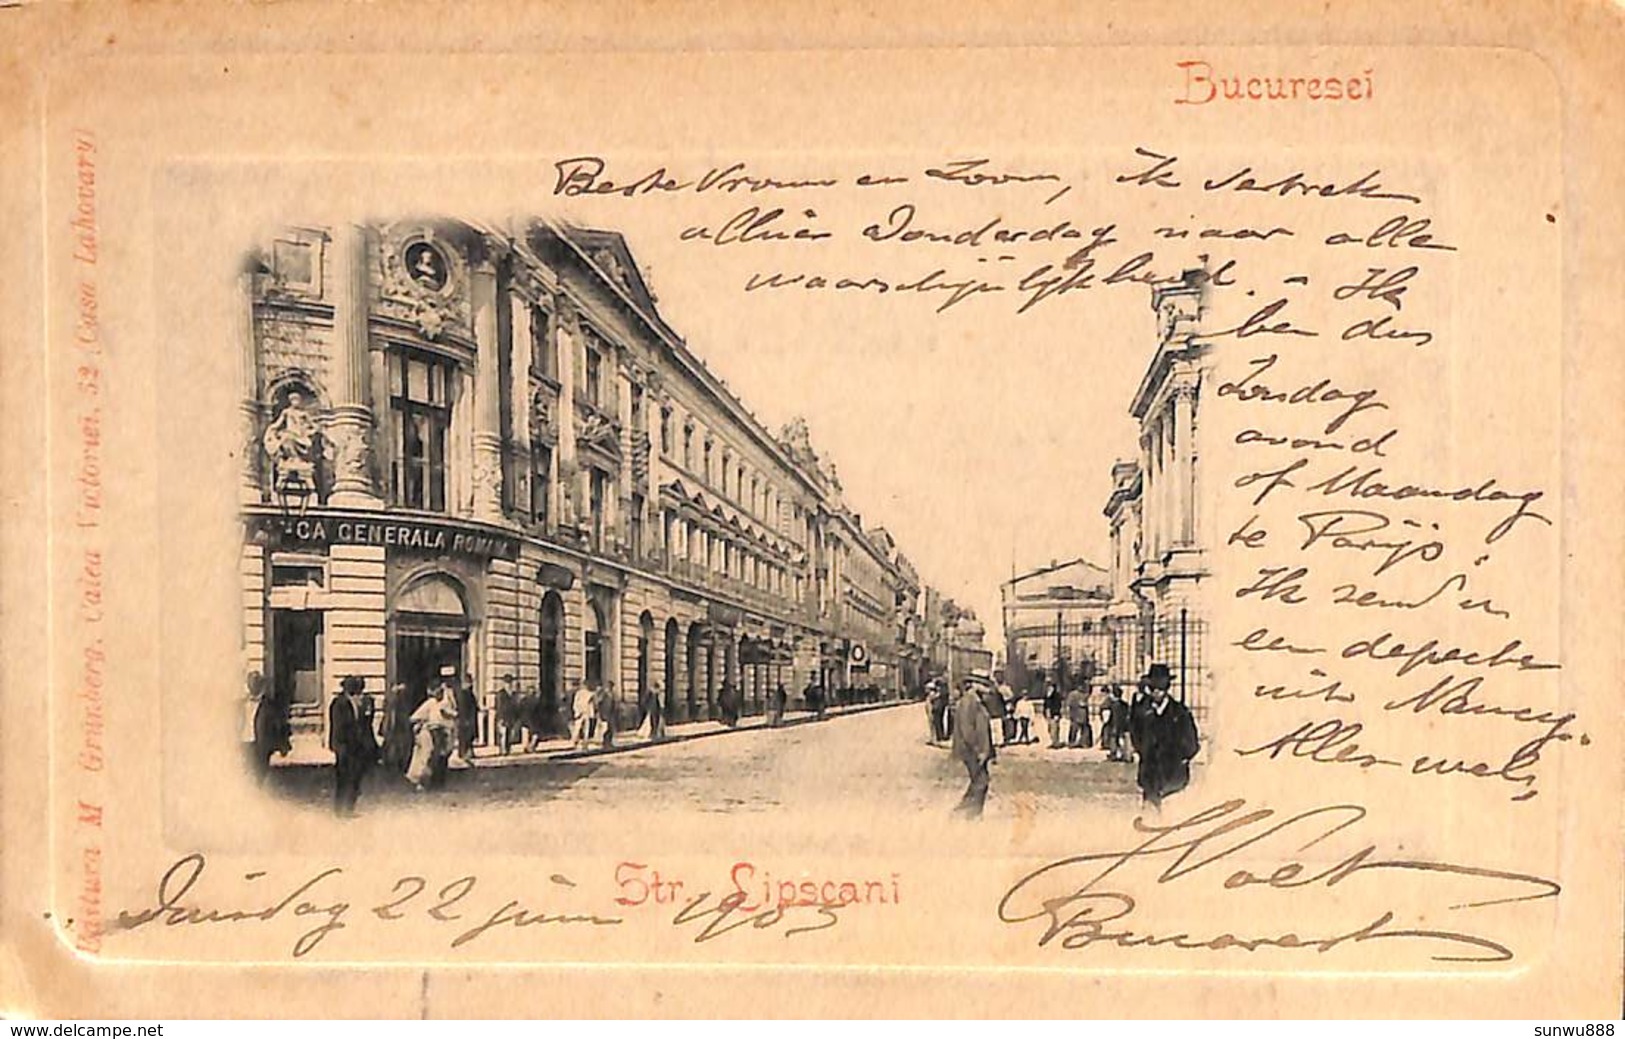 Bucuresci
Beste Vrouw en Zoon, ik vertrek
alhier Donderdag naar alle
waarschijnlijkheid. - Ik
ben dus
Zondag
avond
of Maandag
te Parijs.
Ik zend u
een depeche
uit Nancy.
Alles wels,
Bucarest
Dinsdag 22 juni 1903
Str. Lipscani
Editura M Grünberg. Calea Victoriei. 52 (Casa Lahovary)
CA GENERALA ROMANA
www.delcampe.net
sunwu888